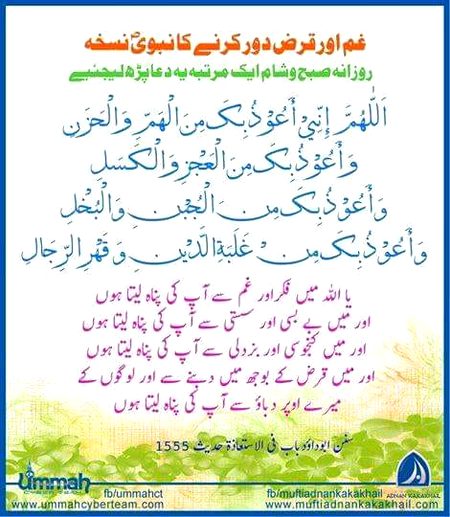 غم اور قرض دور کرنے کا نبویؐ نسخہ
روزانہ صبح و شام ایک مرتبہ یہ دعا پڑھ لیجئیے
اَللّٰهُمَّ إِنِّيْ أَعُوْذُ بِكَ مِنَ الْهَمِّ وَالْحَزَنِ
وَأَعُوْذُ بِكَ مِنَ الْعَجْزِ وَالْكَسَلِ
وَأَعُوْذُ بِكَ مِنَ الْجُبْنِ وَالْبُخْلِ
وَأَعُوْذُ بِكَ مِنْ غَلَبَةِ الدَّيْنِ وَقَهْرِ الرِّجَالِ
یا اللہ میں فکر اور غم سے آپ کی پناہ لیتا ہوں
اور میں بے بسی اور سستی سے آپ کی پناہ لیتا ہوں
اور میں کنجوسی اور بزدلی سے آپ کی پناہ لیتا ہوں
اور میں قرض کے بوجھ میں دبنے سے اور لوگوں کے
میرے اوپر دباؤ سے آپ کی پناہ لیتا ہوں
سنن ابوداؤد باب فی الاستعاذۃ حدیث 1555
ummah
CYBER TEAM
fb/ummahct
www.ummahcyberteam.com
fb/muftiadnankakakhail
ADNAN KAKAKHAIL
www.muftiadnankakakhail.com